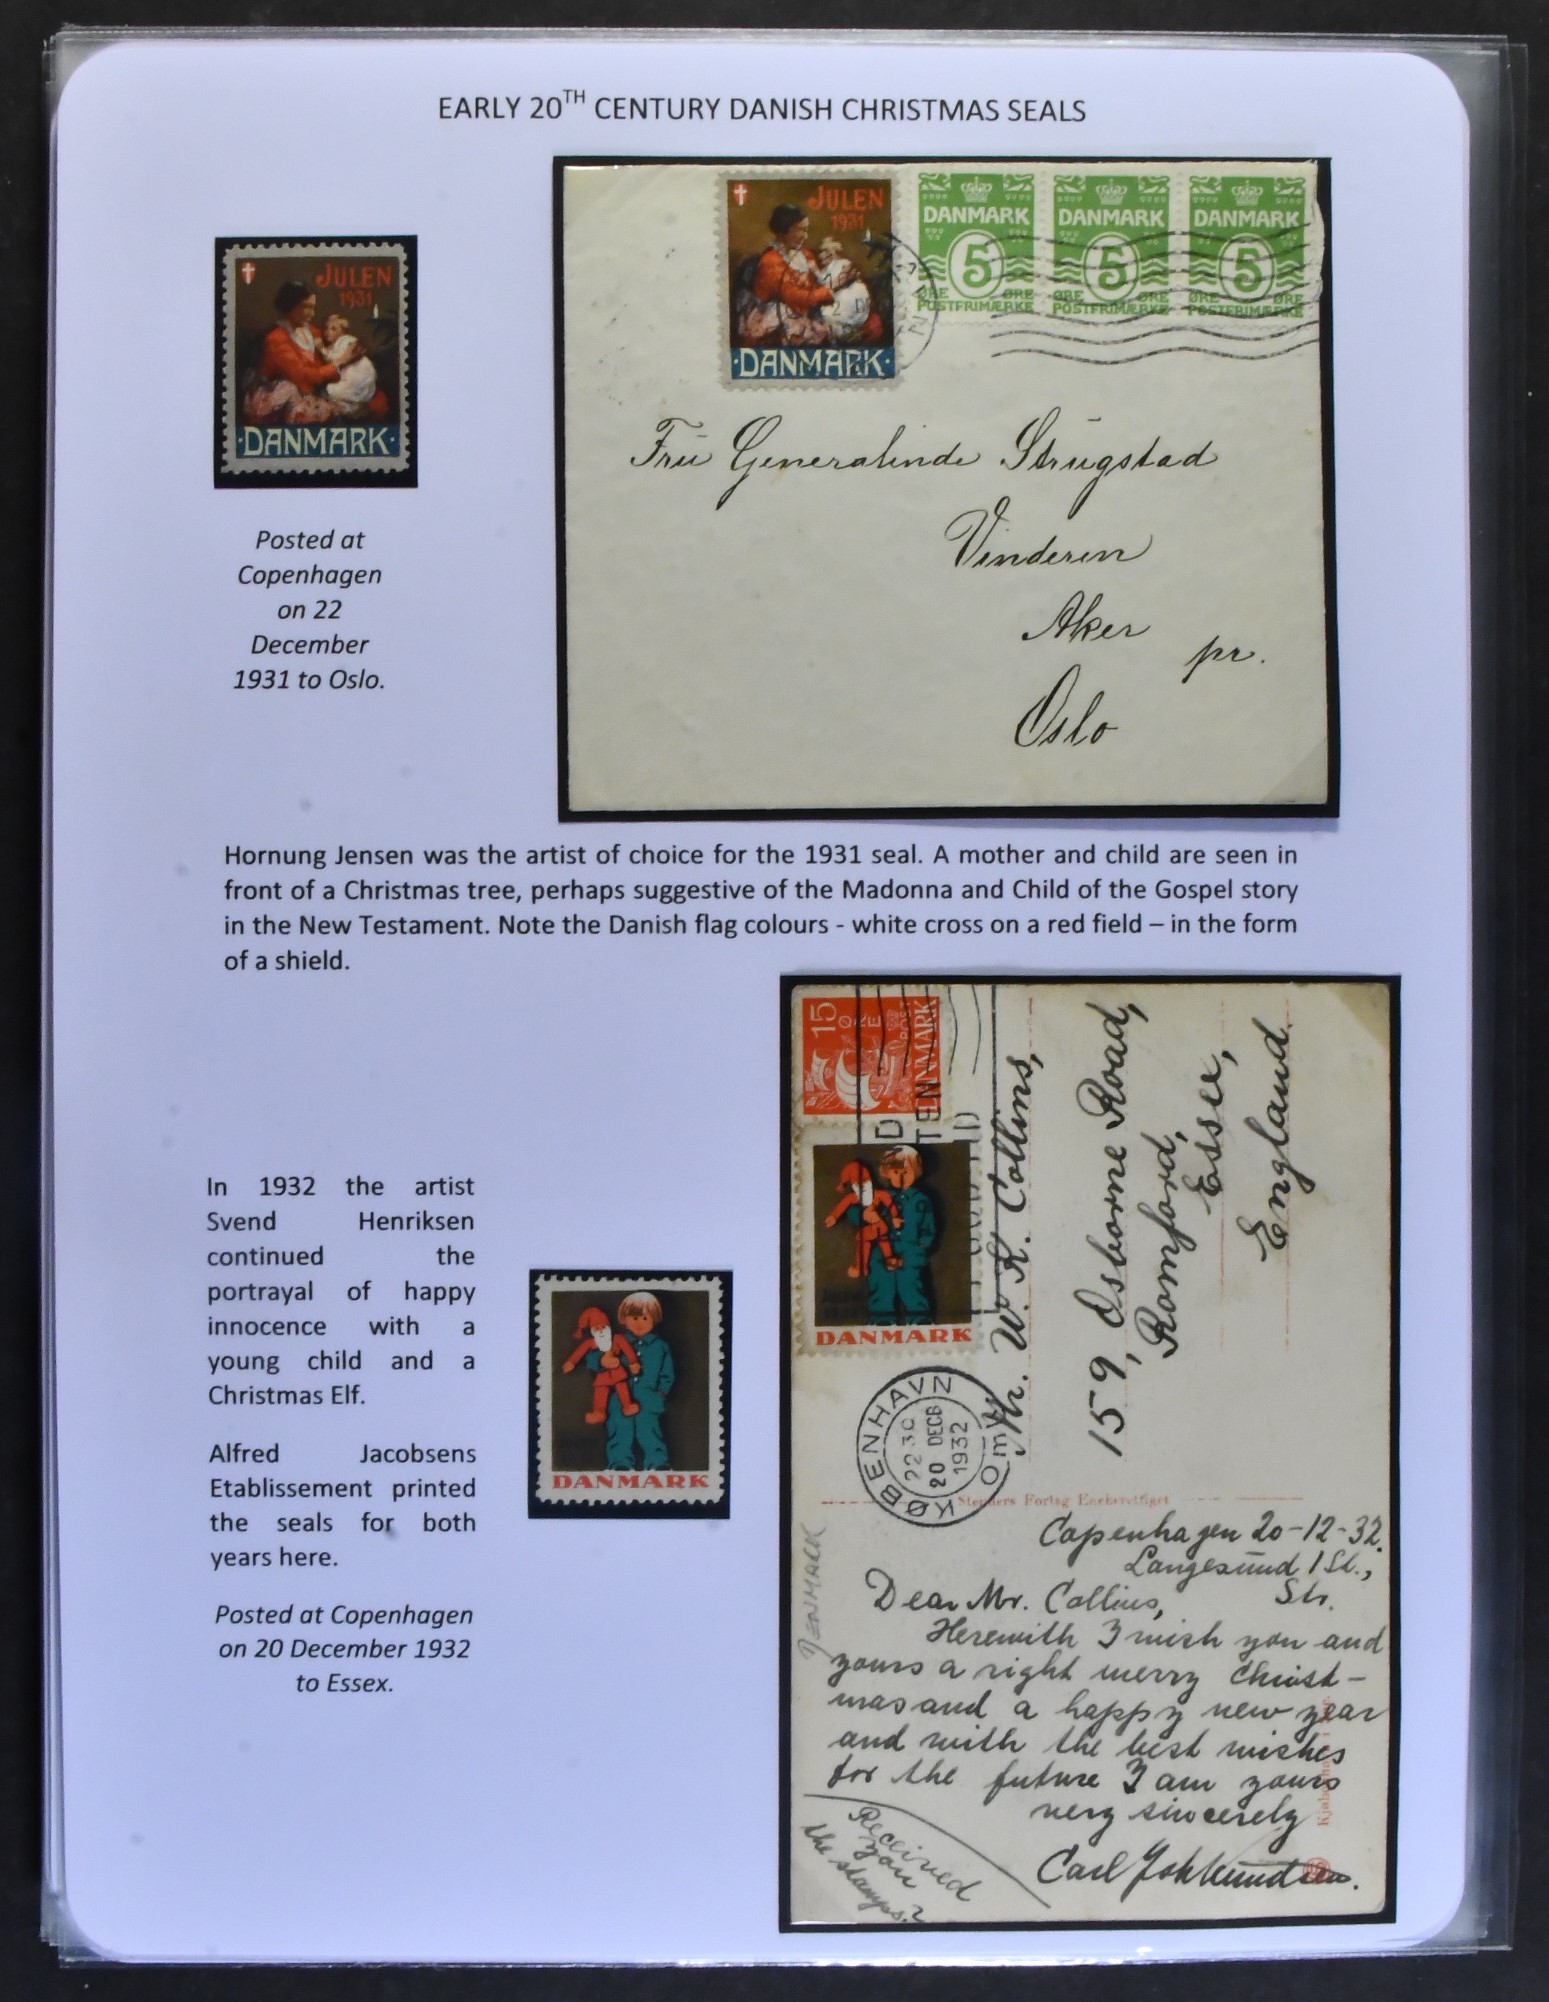 EARLY 20TH CENTURY DANISH CHRISTMAS SEALS
JULEN
1931
·DANMARK·
Posted at
Copenhagen
on 22
December
1931 to Oslo.
JULEN
1931
·DANMARK·
DANMARK
5
ØRE ØRE
POSTFRIMÆRKE
DANMARK
5
ØRE ØRE
POSTFRIMÆRKE
DANMARK
5
ØRE ØRE
POSTFRIMÆRKE
Frú Generalinde Strúgstad
Vinderen
Aker
pr.
Oslo
Hornung Jensen was the artist of choice for the 1931 seal. A mother and child are seen in
front of a Christmas tree, perhaps suggestive of the Madonna and Child of the Gospel story
in the New Testament. Note the Danish flag colours - white cross on a red field – in the form
of a shield.
In 1932 the artist
Svend Henriksen
continued the
portrayal of happy
innocence with a
young child and a
Christmas Elf.
Alfred Jacobsens
Etablissement printed
the seals for both
years here.
Posted at Copenhagen
on 20 December 1932
to Essex.
DANMARK
15
ØRE
POST
DANMARK
DANMARK
KØBENHAVN
2230
20 DECB
1932
OMK
Mr. W. K. Collins,
159, Osborne Road,
Romford,
Essex,
England.
Stenders Forlag Eneberettiget
DENMARK
Copenhagen 20-12-32.
Langesund 1 St.,
Str.
Dear Mr. Collins,
Herewith I wish you and
yours a right merry Christ-
mas and a happy new year
and with the best wishes
for the future I am yours
very sincerely
Carl
Received
you
the stamps?